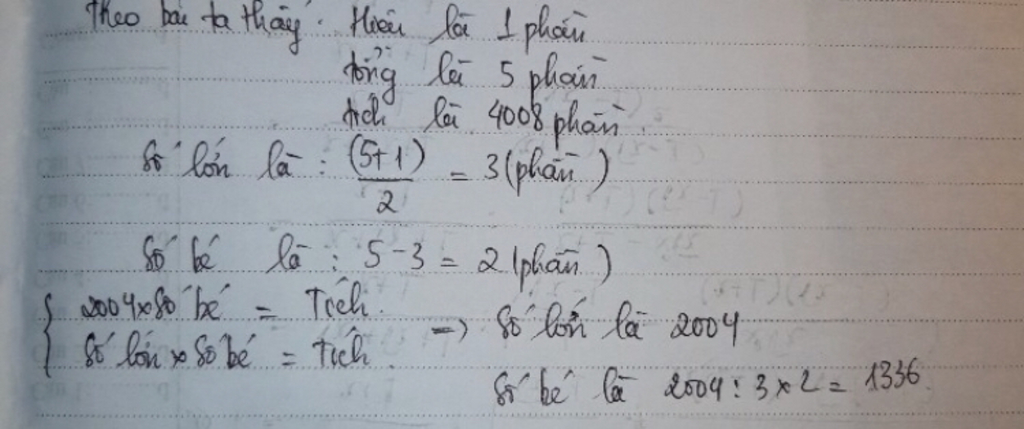 Theo bài ta thấy: Hiệu là 1 phần
tổng là 5 phần
tích là 4008 phần.
Số lớn là : (5+1)/2 = 3 (phần)
Số bé là : 5 - 3 = 2 (phần)
{ 2004 x số bé = Tích.
{ Số lớn x Số bé = Tích. => Số lớn là 2004
Số bé là 2004 : 3 x 2 = 1336